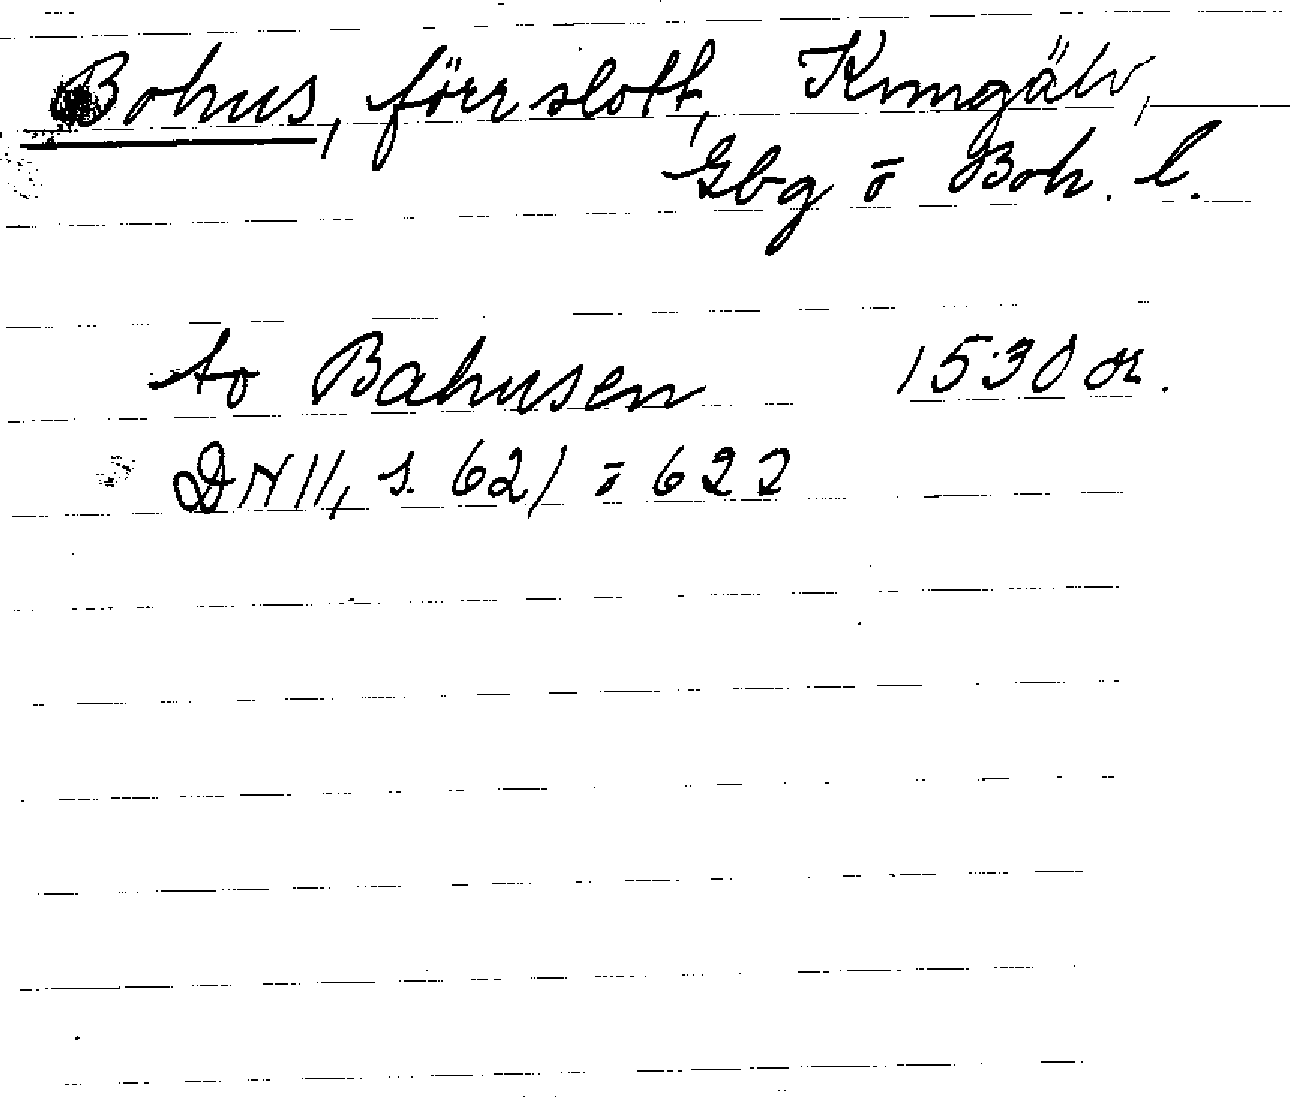 Bohus, förr slott, Kungälv,
Gbg o Boh. l.
to Bahusen 1530 or.
DN 11, s. 621 o 622